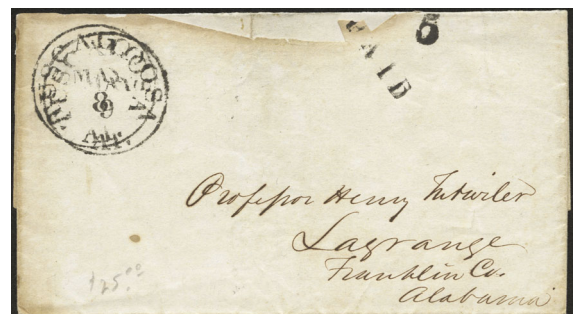 TUSCALOOSA
MAR
AL.
PAID
5
Professor Henry Tutwiler
Lagrange
Franklin Co.
Alabama
$25.00